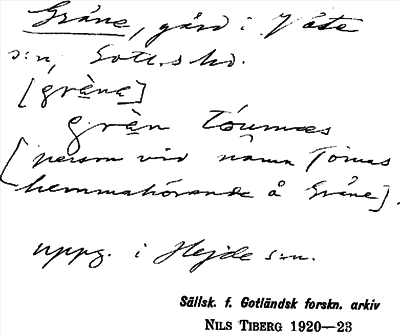 Gråne, gård i Våte
s:n, Gotl.s hd.
[grèna]
grèn tóumas
[person vid namn Tomas
hemmahörande å Gråne].
uppg. i Hejde s:n.
Sällsk. f. Gotländsk forskn. arkiv
NILS TIBERG 1920—23